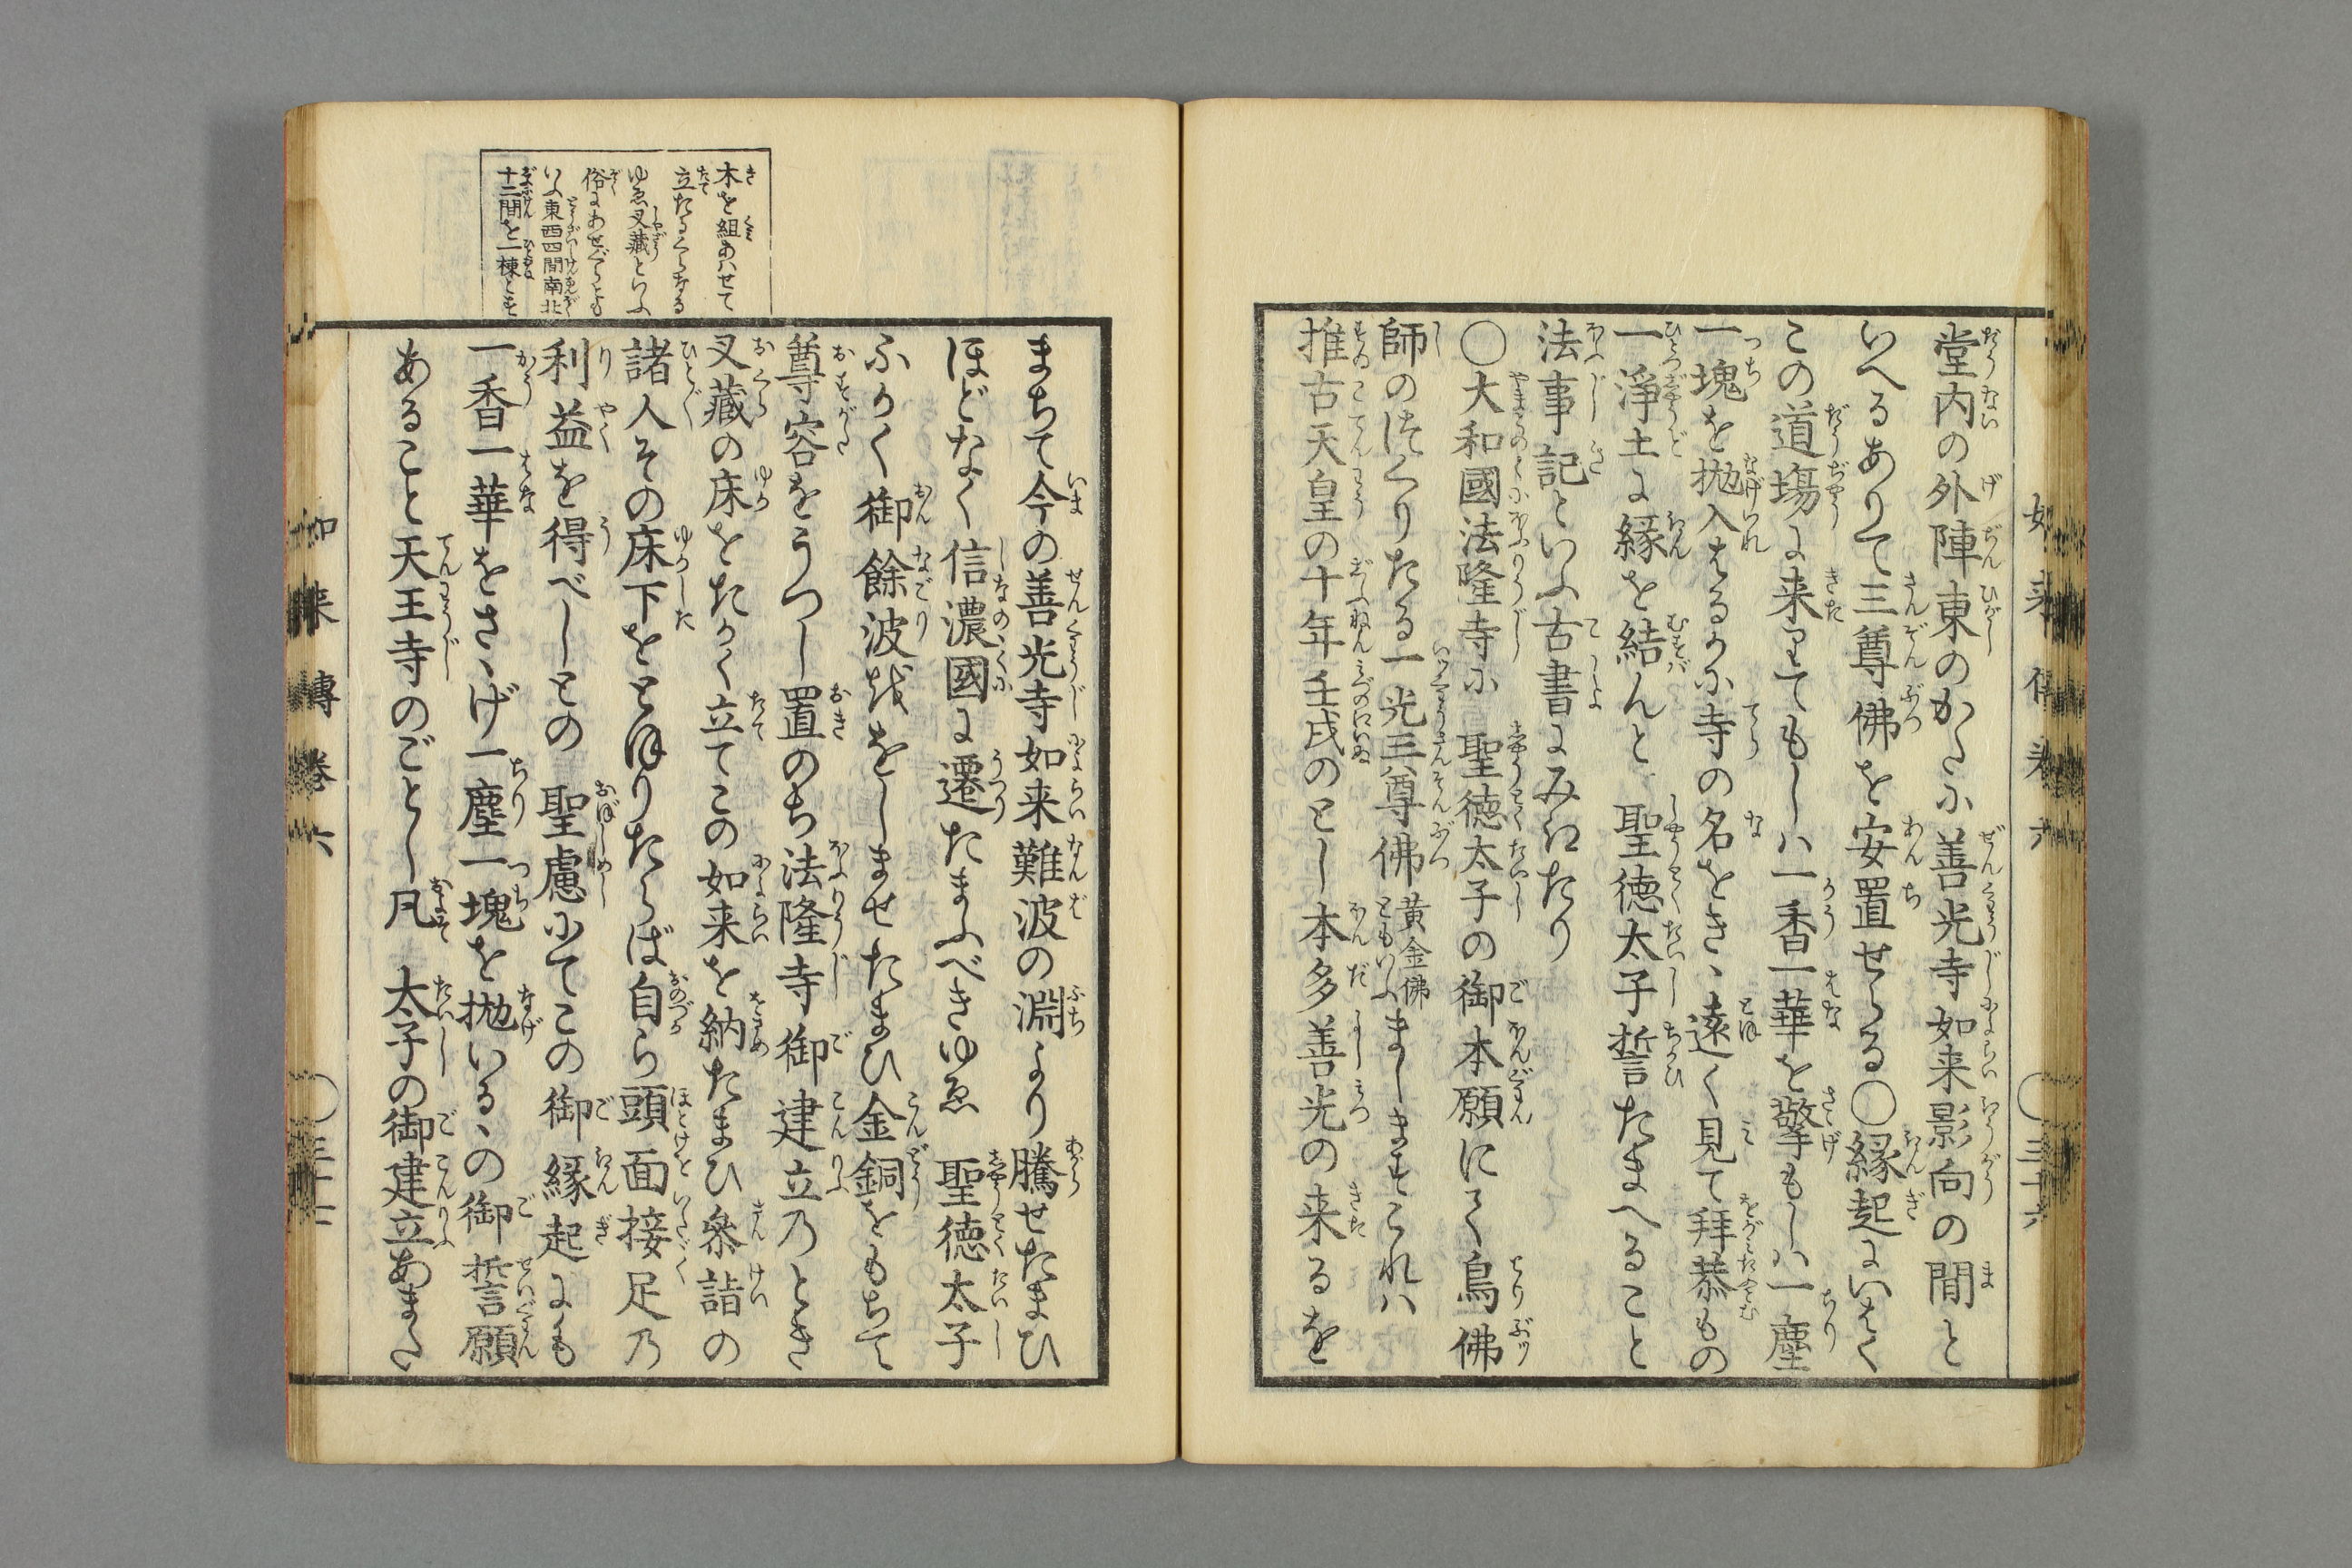 堂内の外陣東のかたに善光寺如来影向の間と
いへるありて三尊佛を安置せらる〇縁起にいはく
この道場に来りてもしハ一香一華を擎もしハ一塵
一塊を抛入はるかに寺の名をきゝ遠く見て拜恭もの
一淨土に縁を結んと 聖徳太子誓たまへること
法事記といふ古書にみえたり
〇大和國法隆寺に 聖徳太子の御本願にて鳥佛
師のつくりたる一光三尊佛黄金佛ともいふましますこれハ
推古天皇の十年壬戌のとし本多善光の来るを
如来傳巻六 〇三十六
木を組あハせて
立たるくらなる
ゆゑ叉藏といふ
俗にあぜくらとも
いふ東西四間南北
十二間を一棟とす
まちて今の善光寺如来難波の淵より騰せたまひ
ほどなく信濃國に遷たまふべきゆゑ 聖徳太子
ふかく御餘波ををしませたまひ金銅をもちて
尊容をうつし置のち法隆寺御建立乃とき
叉藏の床をたかく立てこの如来を納たまひ參詣の
諸人その床下をとほりたらば自ら頭面接足乃
利益を得べしとの 聖慮にてこの御縁起にも
一香一華をさゝげ一塵一塊を抛いるゝの御誓願
あること天王寺のごとし凡 太子の御建立あまた
如来傳巻六